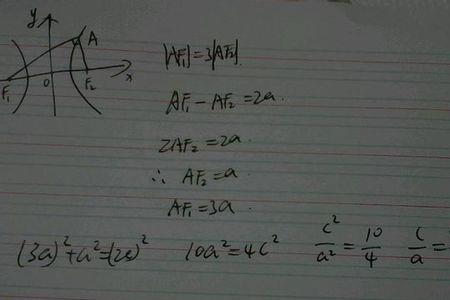 y
A
F₁ O F₂ x
|AF₁|=3|AF₂|.
AF₁-AF₂=2a.
2AF₂=2a.
∴ AF₂=a.
AF₁=3a
(3a)²+a²=(2c)² 10a²=4c² c²/a²=10/4 c/a=